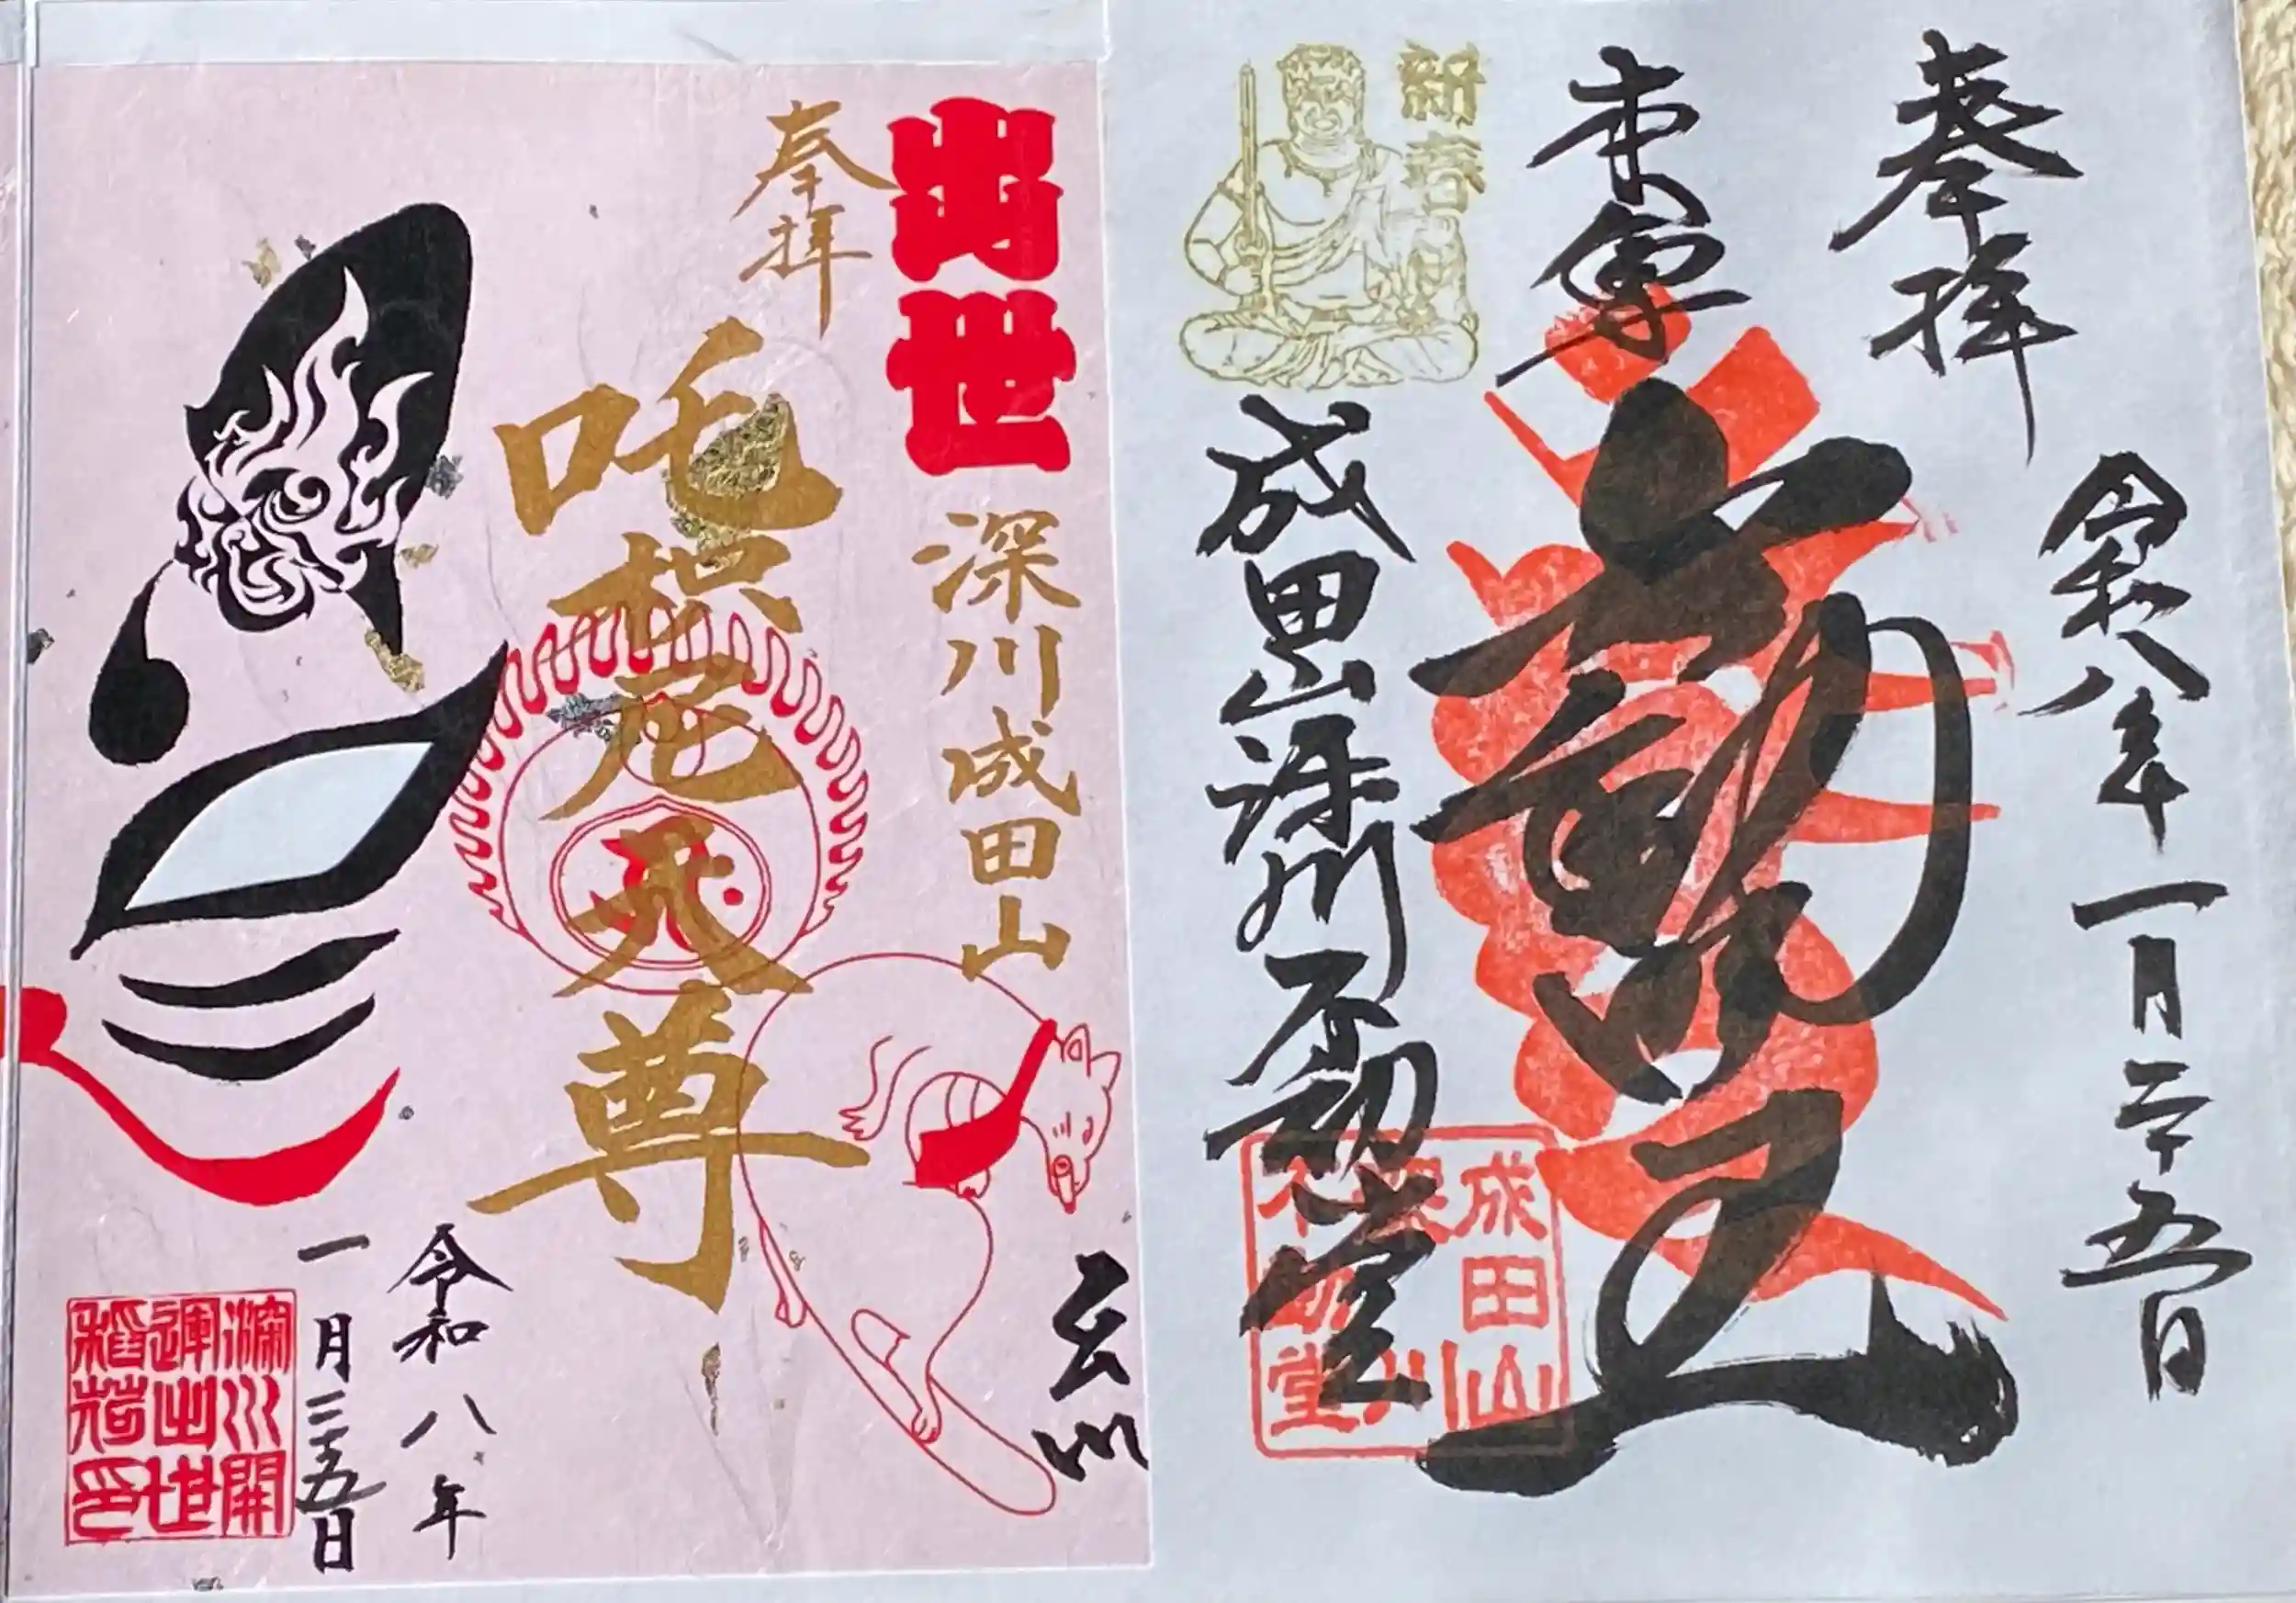 奉拝
令和八年一月二十五日
本尊
不動明王
新春
成田山深川不動堂
成田山
深川
不動堂
出世
深川成田山
奉拝
吒枳尼天尊
令和八年
一月二十五日
深川開
運出世
稲荷印